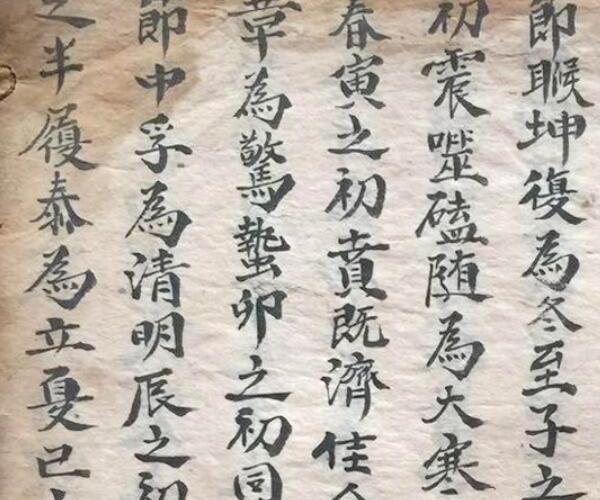 節睺坤復為冬至子之
初震噬磕随為大寒
春寅之初賁既濟佳人
章為驚蟄卯之初同
節中孚為清明辰之初
之半履泰為立夏已